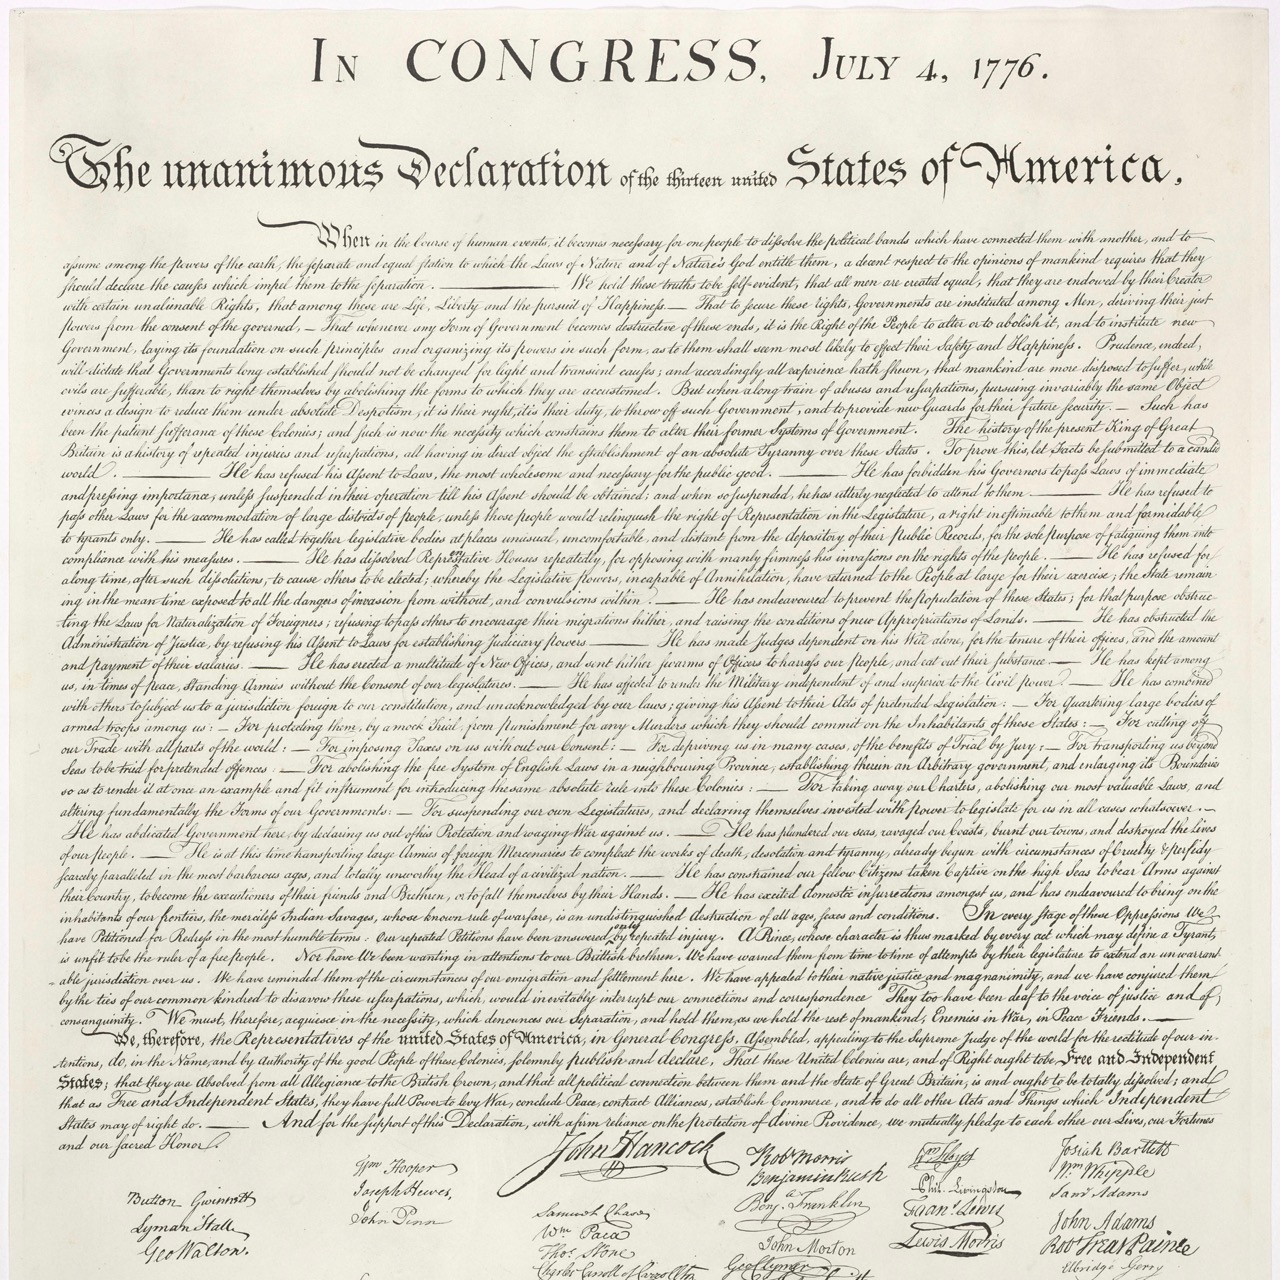 IN CONGRESS, JULY 4, 1776.
The unanimous Declaration of the thirteen united States of America,
When in the Course of human events, it becomes necessary for one people to dissolve the political bands which have connected them with another, and to
assume among the powers of the earth, the separate and equal station to which the Laws of Nature and of Nature's God entitle them, a decent respect to the opinions of mankind requires that they
should declare the causes which impel them to the separation. — We hold these truths to be self-evident, that all men are created equal, that they are endowed by their Creator
with certain unalienable Rights, that among these are Life, Liberty and the pursuit of Happiness. — That to secure these rights, Governments are instituted among Men, deriving their just
powers from the consent of the governed, — That whenever any Form of Government becomes destructive of these ends, it is the Right of the People to alter or to abolish it, and to institute new
Government, laying its foundation on such principles and organizing its powers in such form, as to them shall seem most likely to effect their Safety and Happiness. Prudence, indeed,
will dictate that Governments long established should not be changed for light and transient causes; and accordingly all experience hath shewn, that mankind are more disposed to suffer, while
evils are sufferable, than to right themselves by abolishing the forms to which they are accustomed. But when a long train of abuses and usurpations, pursuing invariably the same Object
evinces a design to reduce them under absolute Despotism, it is their right, it is their duty, to throw off such Government, and to provide new Guards for their future security. — Such has
been the patient sufferance of these Colonies; and such is now the necessity which constrains them to alter their former Systems of Government. The history of the present King of Great
Britain is a history of repeated injuries and usurpations, all having in direct object the establishment of an absolute Tyranny over these States. To prove this, let Facts be submitted to a candid
world. — He has refused his Assent to Laws, the most wholesome and necessary for the public good. — He has forbidden his Governors to pass Laws of immediate
and pressing importance, unless suspended in their operation till his Assent should be obtained; and when so suspended, he has utterly neglected to attend to them. — He has refused to
pass other Laws for the accommodation of large districts of people, unless those people would relinquish the right of Representation in the Legislature, a right inestimable to them and formidable
to tyrants only. — He has called together legislative bodies at places unusual, uncomfortable, and distant from the depository of their Public Records, for the sole purpose of fatiguing them into
compliance with his measures. — He has dissolved Representative Houses repeatedly, for opposing with manly firmness his invasions on the rights of the people. — He has refused for
a long time, after such dissolutions, to cause others to be elected; whereby the Legislative powers, incapable of Annihilation, have returned to the People at large for their exercise; the State remain
ing in the mean time exposed to all the dangers of invasion from without, and convulsions within. — He has endeavoured to prevent the population of these States; for that purpose obstruc
ting the Laws for Naturalization of Foreigners; refusing to pass others to encourage their migrations hither, and raising the conditions of new Appropriations of Lands. — He has obstructed the
Administration of Justice, by refusing his Assent to Laws for establishing Judiciary powers — He has made Judges dependent on his Will alone, for the tenure of their offices, and the amount
and payment of their salaries. — He has erected a multitude of New Offices, and sent hither swarms of Officers to harrass our people, and eat out their substance. — He has kept among
us, in times of peace, Standing Armies without the Consent of our legislatures. — He has affected to render the Military independent of and superior to the Civil power. — He has combined
with others to subject us to a jurisdiction foreign to our constitution, and unacknowledged by our laws; giving his Assent to their Acts of pretended Legislation: — For Quartering large bodies of
armed troops among us: — For protecting them, by a mock Trial, from punishment for any Murders which they should commit on the Inhabitants of these States: — For cutting off
our Trade with all parts of the world: — For imposing Taxes on us without our Consent: — For depriving us in many cases, of the benefits of Trial by Jury: — For transporting us beyond
Seas to be tried for pretended offences — For abolishing the free System of English Laws in a neighbouring Province, establishing therein an Arbitrary government, and enlarging its Boundaries
so as to render it at once an example and fit instrument for introducing the same absolute rule into these Colonies: — For taking away our Charters, abolishing our most valuable Laws, and
altering fundamentally the Forms of our Governments: — For suspending our own Legislatures, and declaring themselves invested with power to legislate for us in all cases whatsoever. —
He has abdicated Government here, by declaring us out of his Protection and waging War against us. — He has plundered our seas, ravaged our Coasts, burnt our towns, and destroyed the lives
of our people. — He is at this time transporting large Armies of foreign Mercenaries to compleat the works of death, desolation and tyranny, already begun with circumstances of Cruelty & perfidy
scarcely paralleled in the most barbarous ages, and totally unworthy the Head of a civilized nation. — He has constrained our fellow Citizens taken Captive on the high Seas to bear Arms against
their Country, to become the executioners of their friends and Brethren, or to fall themselves by their Hands. — He has excited domestic insurrections amongst us, and has endeavoured to bring on the
inhabitants of our frontiers, the merciless Indian Savages, whose known rule of warfare, is an undistinguished destruction of all ages, sexes and conditions. In every stage of these Oppressions We
have Petitioned for Redress in the most humble terms: Our repeated Petitions have been answered only by repeated injury. A Prince, whose character is thus marked by every act which may define a Tyrant,
is unfit to be the ruler of a free people. Nor have We been wanting in attentions to our Brittish brethren. We have warned them from time to time of attempts by their legislature to extend an unwarrant-
able jurisdiction over us. We have reminded them of the circumstances of our emigration and settlement here. We have appealed to their native justice and magnanimity, and we have conjured them
by the ties of our common kindred to disavow these usurpations, which, would inevitably interrupt our connections and correspondence They too have been deaf to the voice of justice and of
consanguinity. We must, therefore, acquiesce in the necessity, which denounces our Separation, and hold them, as we hold the rest of mankind, Enemies in War, in Peace Friends. —
We, therefore, the Representatives of the united States of America, in General Congress, Assembled, appealing to the Supreme Judge of the world for the rectitude of our in-
tentions, do, in the Name, and by Authority of the good People of these Colonies, solemnly publish and declare, That these United Colonies are, and of Right ought to be Free and Independent
States; that they are Absolved from all Allegiance to the British Crown, and that all political connection between them and the State of Great Britain, is and ought to be totally dissolved; and
that as Free and Independent States, they have full Power to levy War, conclude Peace, contract Alliances, establish Commerce, and to do all other Acts and Things which Independent
States may of right do. — And for the support of this Declaration, with a firm reliance on the protection of divine Providence, we mutually pledge to each other our Lives, our Fortunes
and our sacred Honor.
Button Gwinnett
Lyman Hall
Geo Walton.
Wm Hooper
Joseph Hewes,
John Penn
John Hancock
Samuel Chase
Wm. Paca
Thos. Stone
Charles Carroll of Carrollton
Robt Morris
Benjamin Rush
Benja. Franklin
John Morton
Geo Clymer
Wm Floyd
Phil. Livingston
Frans. Lewis
Lewis Morris
Josiah Bartlett
Wm. Whipple
Saml Adams
John Adams
Robt Treat Paine
Elbridge Gerry